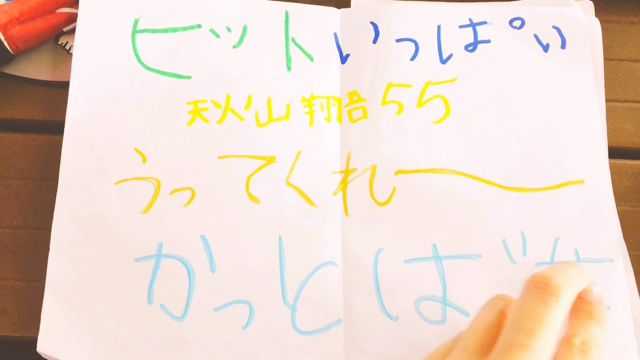 ヒットいっぱい
秋山翔吾55
うってくれ〜
かっとばせ